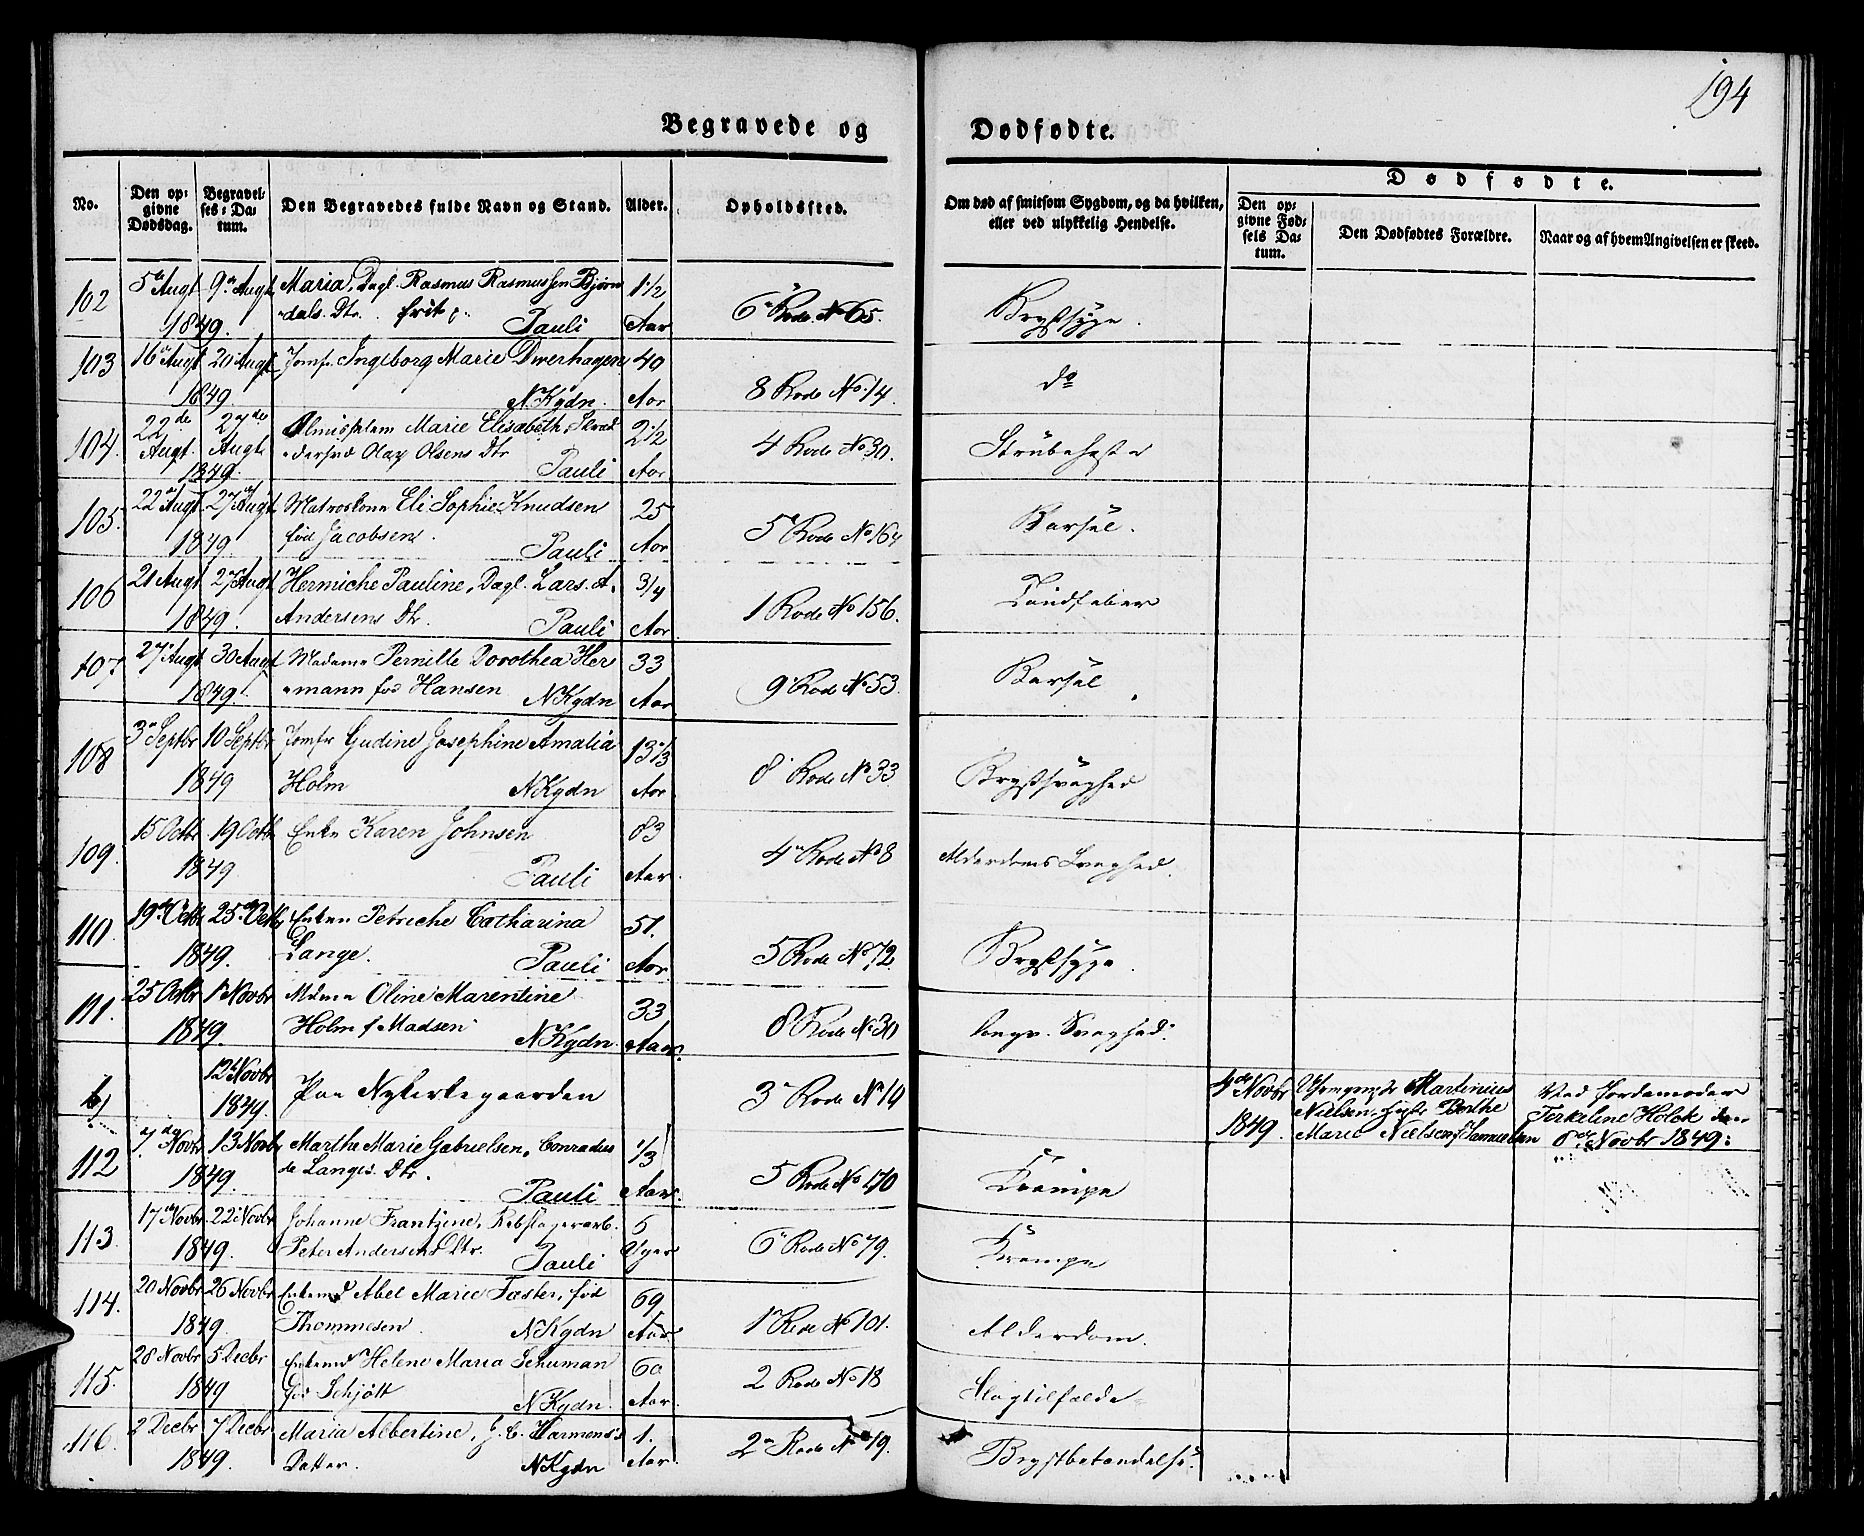 194
Begravede og Dødfødte.
No. Den opgivne Dødsdag. Begravelses-Datum. Den Begravedes fulde Navn og Stand. Alder. Opholdssted. Om død af smitsom Sygdom, og da hvilken, eller ved ulykkelig Hendelse. Dødfødte.
Den opgivne Fødsels Datum. Den Dødfødtes Forældre. Naar og af hvem Angivelsen er skeed.
102 5 Augt 9 Augt Maria, Dagl. Rasmus Rasmussen Bjørn 1 1/2 6 Rode No 65. Brystsyge.
1849. dals Dtr. frit Pauli Aar
103 16 Augt 20 Augt Jomfr Ingeborg Marie Dwerhagen 40 8 Rode No. 14. do
1849. N Kgdn. Aar
104. 22de Augt. 27de Augt. Almisselem Marie Elisabeth, Skræd 2 1/2 4 Rode No 30. Strubehoste
1849. dersvd Olay Olsens Dtr Pauli Aar
105. 22 Augt 27 Augt Matroskone Eli Sophie Knudsen 25 5 Rode No 164 Barsel.
1849. fød Jacobsen. Pauli Aar
106 21 Augt 27 Augt Hermiche Pauline, Dagl. Lars A. 3/4 1 Rode No 156. Tandfeber
1849. Andersens Dtr. Pauli Aar.
107. 27 Augt 30 Augt Madame Pernille Dorothea Her 33 9 Rode No 53. Barsel
1849. mann fød Hansen N Kgdn Aar
108 3 Septbr 10 Septbr Jomfr Gudine Josephine Amalia 13 1/3 8 Rode No 33 Brystsvaghed
1849 Holm N Kgdn Aar
109. 15 Octbr 19 Octbr Enke Karen Johnsen 83 4 Rode No 8 Alderdoms Svaghed.
1849 Pauli Aar.
110. 19 Octbr 25 Octbr Enken Petriche Catharina 51. 5 Rode No 72. Brystsyge
1849. Lange. Pauli Aar
111. 25 Octbr 1 Novbr Mdme Oline Marentine 33 8 Rode No 30 Svaghed.
1849. Holm f Madsen N Kgdn. Aar.
12 Novbr Paa Nykirkegaarden 3 Rode No 19 4de Novbr Martinius Ved Jordemoder
1849. 1849. Nielsen, Berthe Terkeline Holck den
Marie Nielsen f Samuelsen 8de Novbr 1849.
112 7de Novbr 13 Novbr Marthe Marie Gabrielsen, Conradus 1/3 5 Rode No 170 Krampe
1849. de Langes Dtr. Pauli Aar.
113. 17 Novbr 22 Novbr Johanne Frantzine, Rebslagerarb. 5 6 Rode No 79. Krampe
1849. Peter Andersens Dtr. Pauli Uger
114. 20 Novbr 26 Novbr Enkemd Abel Marie Fæster, fød 69 1 Rode No 101. Alderdom.
1849. Thommesen. N Kgdn Aar.
115. 28 Novbr 5 Decbr Enkemd Helene Maria Schuman 60 2 Rode No 18 Slagtilfælde
1849 fød Schjøtt N Kgdn. Aar.
116. 2 Decbr 7 Decbr Maria Albertine, J. C. Harmens's 1. 2 Rode No 19. Brystbetændelse.
1849. Datter. N Kgdn Aar.